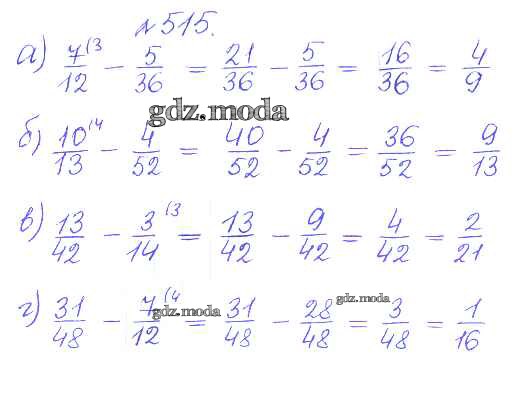 №515.
а) 7/12 (3 − 5/36 = 21/36 − 5/36 = 16/36 = 4/9
gdz.moda
б) 10/13 (4 − 4/52 = 40/52 − 4/52 = 36/52 = 9/13
в) 13/42 − 3/14 (3 = 13/42 − 9/42 = 4/42 = 2/21
gdz.moda
г) 31/48 − 7/12 (4 = 31/48 − 28/48 = 3/48 = 1/16
gdz.moda